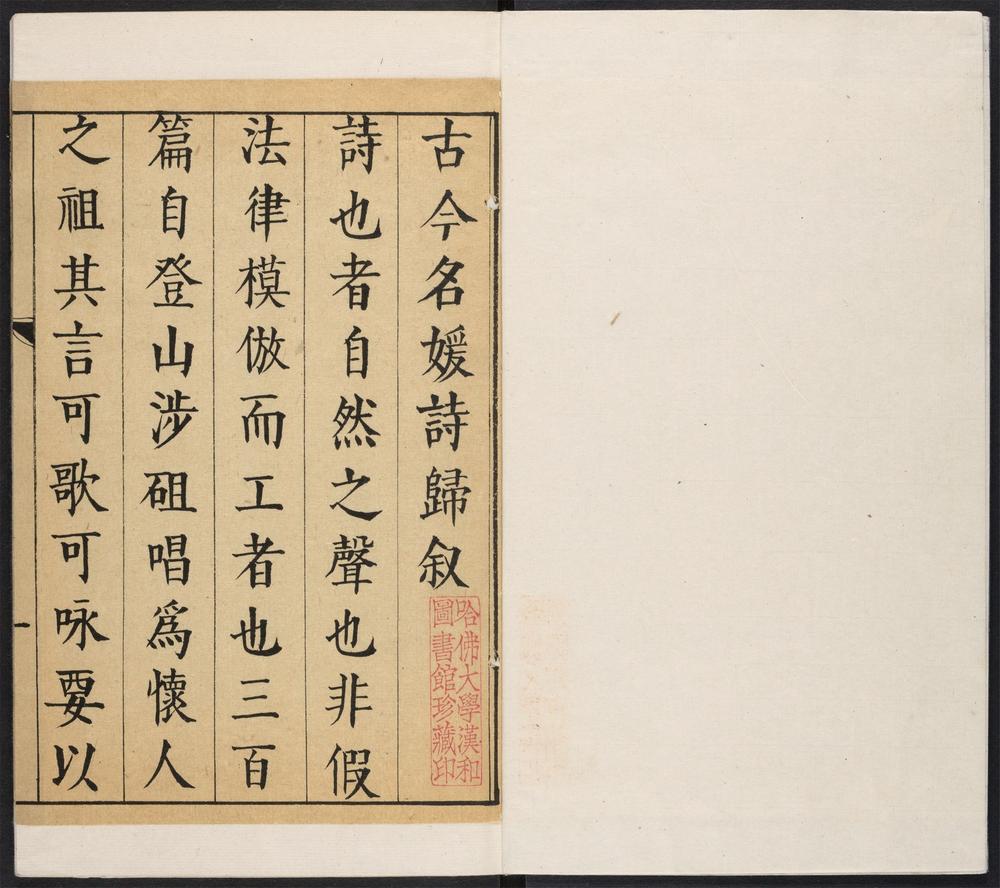 古今名媛詩歸叙
詩也者自然之聲也非假
法律模倣而工者也三百
篇自登山涉砠唱爲懷人
之祖其言可歌可咏要以
哈佛大學漢和
圖書館珍藏印